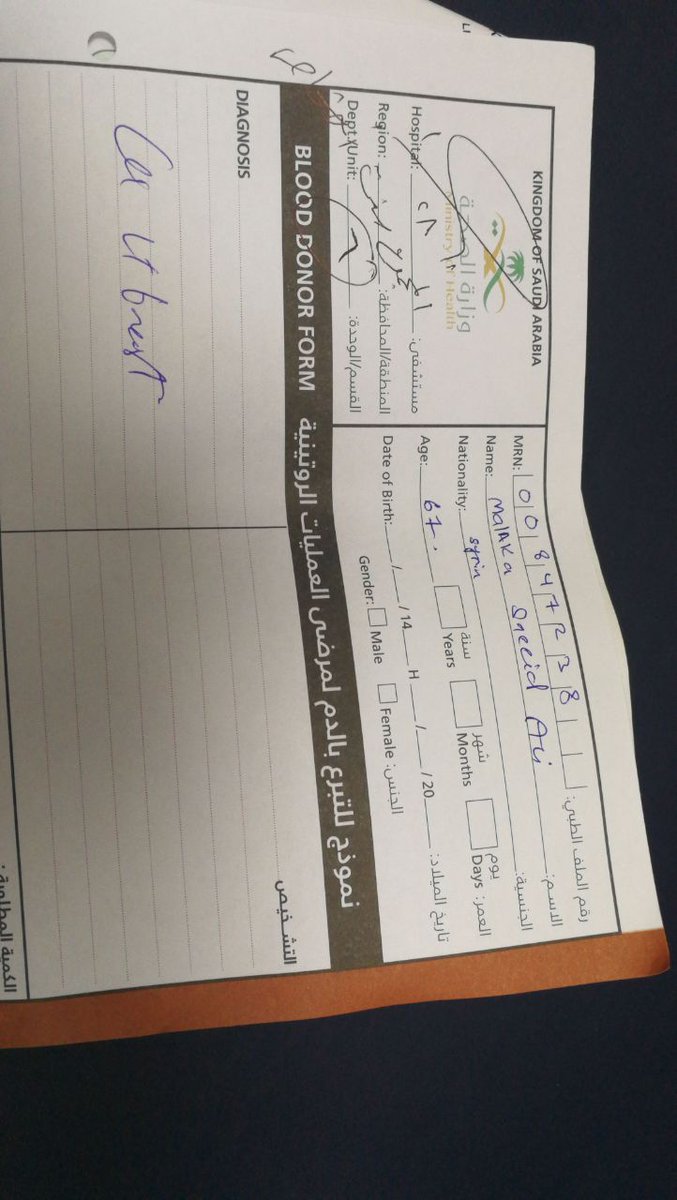 KINGDOM OF SAUDI ARABIA
وزارة الصحة
Ministry of Health
Hospital: مستشفى:
Region: المنطقة/المحافظة:
Dept./Unit: القسم/الوحدة:
MRN: 00847238 رقم الملف الطبي:
Name: Malaka Saeeid Ali الاسم:
Nationality: syrin الجنسية:
Age: 67 سنة Years شهر Months يوم Days العمر:
Date of Birth: / / 14 H / / 20 تاريخ الميلاد:
Gender: Male Female الجنس:
BLOOD DONOR FORM نموذج للتبرع بالدم لمرضى العمليات الروتينية
DIAGNOSIS التشخيص
Lt breast
الكمية المطلوبة: